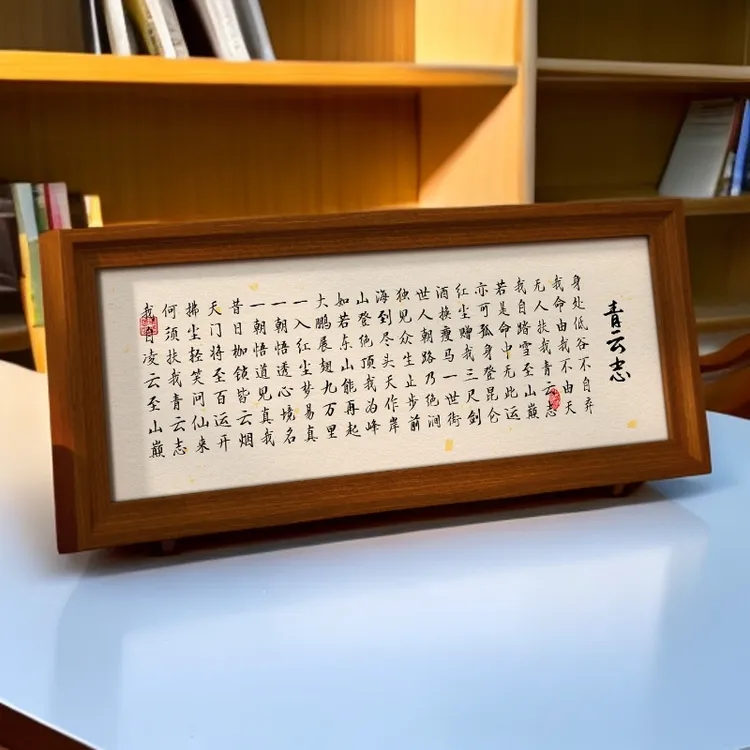 青云志
身处低谷不自弃
我命由我不由天
无人扶我青云志
我自踏雪至山巅
若是命中无此运
亦可孤身登昆仑
红尘赠我三尺剑
酒换瘦马一世街
世人朝路乃绝涧
独见众生止步前
海到尽头天作岸
山登绝顶我为峰
如若东山能再起
大鹏展翅九万里
一入红尘梦易真
一朝悟透心境名
一朝悟道见真我
昔日枷锁皆云烟
天门将至百运开
拂尘轻笑问仙来
何须扶我青云志
我自凌云至山巅